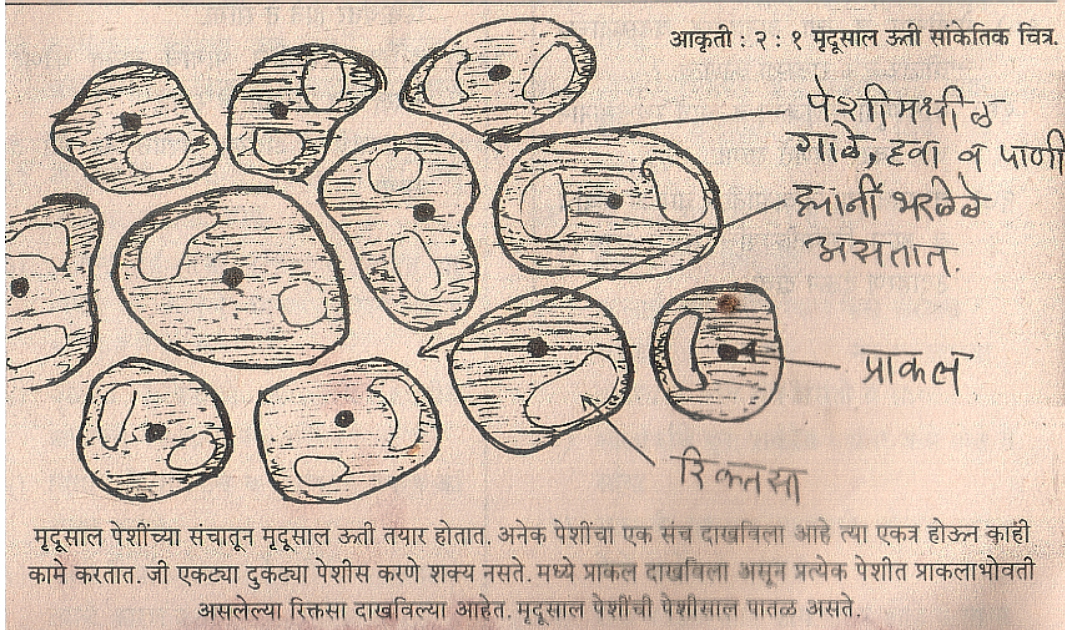 आकृती : २ : १ मृदूसाल ऊती सांकेतिक चित्र.
पेशीमधील
गाळे, हवा व पाणी
ह्यांनी भरलेले
असतात.
प्राकल
रिक्तसा
मृदूसाल पेशींच्या संचातून मृदूसाल ऊती तयार होतात. अनेक पेशींचा एक संच दाखविला आहे त्या एकत्र होऊन काही
कामे करतात. जी एकट्या दुकट्या पेशीस करणे शक्य नसते. मध्ये प्राकल दाखविला असून प्रत्येक पेशीत प्राकलाभोवती
असलेल्या रिक्तसा दाखविल्या आहेत. मृदूसाल पेशींची पेशीसाल पातळ असते.